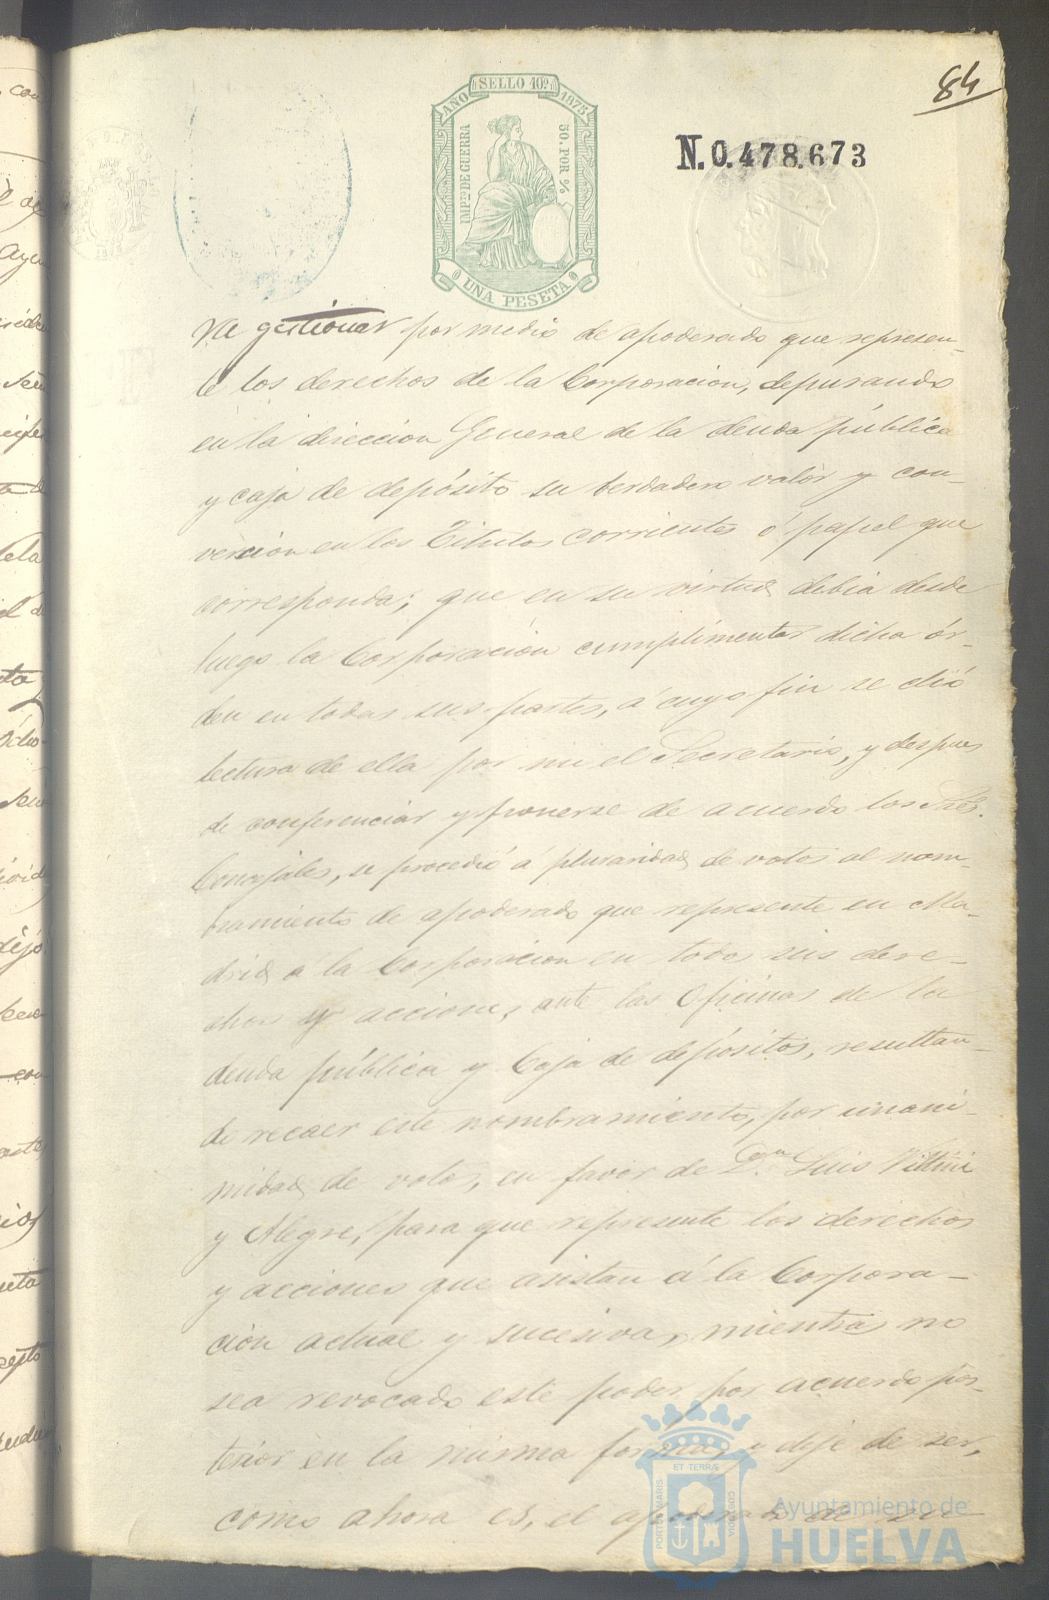 84
AÑO SELLO 10º 1875
IMPTO DE GUERRA
50. POR %
UNA PESETA
N.0.478.673
gestionar por medio de apoderado que represen-
te los derechos de la Corporacion, depurando
en la direccion General de la deuda pública
y caja de depósito su berdadero valor y con-
vercion en los Titulos corrientes ó papel que
corresponda; que en su virtud debia desde
luego la Corporación cumplimentar dicha ór-
den en todas sus partes, á cuyo fin se dió
lectura de ella por mi el Secretario, y despues
de conferenciar y ponerse de acuerdo los Sres.
Concejales, se procedió á pluraridad de votos al nom
bramiento de apoderado que represente en Ma-
drid á la Corporacion en todos sus dere-
chos y acciones, ante las Oficinas de la
deuda pública y Caja de depósitos, resultan-
do recaer este nombramiento, por unani-
midad de votos, en favor de D.n Luis Villini
y Alegre, para que represente los derechos
y acciones que asistan á la Corpora-
cion actual y sucesiva, mientras no
sea revocado este poder por acuerdo pos-
terior en la misma forma, y deje de ser,
como ahora es, el apoderado de su
PORTUS MARIS ET TERRÆ CUSTODIA
Ayuntamiento de
HUELVA